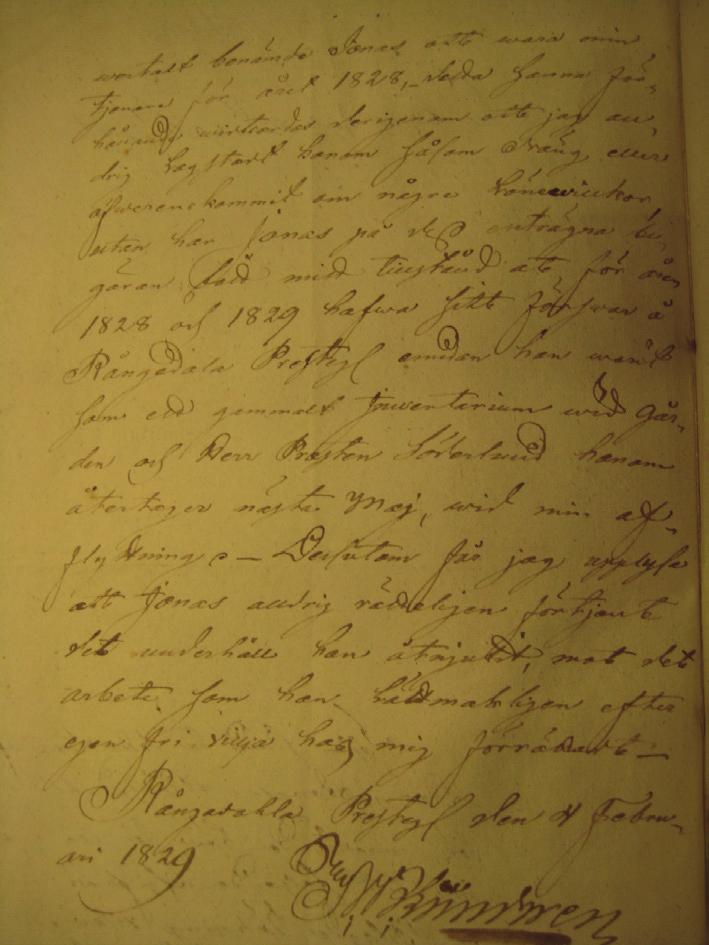 wertalt benämde Jonas att wara min
tjenare för året 1828, - detta hanns för-
hållande derigenom att jag ald-
rig lagstadt honom såsom dräng eller
öfwerenskommit om några lönewillkor
utan har Jonas på dess enträgna be-
gäran fått mitt tillstånd att för åren
1828 och 1829 hafwa sitt förswar å
Rångedala Prestgl emedan han warit
som ett gammalt Inventarium wid Går-
den och Herr Prosten Söderlund honom
återtager nästa Maj, wid min af-
flyttning. - Dessutom får jag upplysa
att Jonas aldrig rätteligen förtjent
det underhåll han åtnjutit, mot det
arbete som han efter
egen fri vilja hos mig förrättat -
Rångedahla Prestgl den 4 Februa-
ari 1829